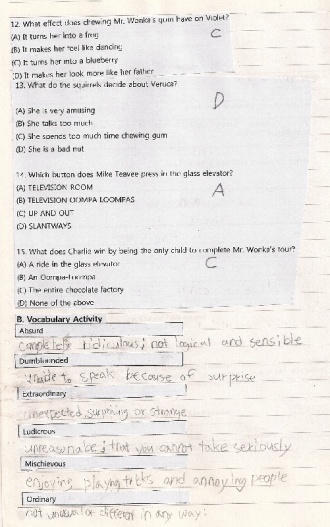 12. What effect does chewing Mr. Wonka's gum have on Violet?
C
(A) It turns her into a frog
(B) It makes her feel like dancing
(C) It turns her into a blueberry
(D) It makes her look more like her father
13. What do the squirrels decide about Veruca?
D
(A) She is very amusing
(B) She talks too much
(C) She spends too much time chewing gum
(D) She is a bad nut
14. Which button does Mike Teavee press in the glass elevator?
(A) TELEVISION ROOM
A
(B) TELEVISION OOMPA LOOMPAS
(C) UP AND OUT
(D) SLANTWAYS
15. What does Charlie win by being the only child to complete Mr. Wonka's tour?
(A) A ride in the glass elevator
C
(B) An Oompa-Loompa
(C) The entire chocolate factory
(D) None of the above
B. Vocabulary Activity
Absurd
completely ridiculous; not logical and sensible
Dumbfounded
unable to speak because of surprise
Extraordinary
unexpected surprising or strange
Ludicrous
unreasonable; that you cannot take seriously
Mischievous
enjoying playing tricks and annoying people
Ordinary
not unusual or different in any way: